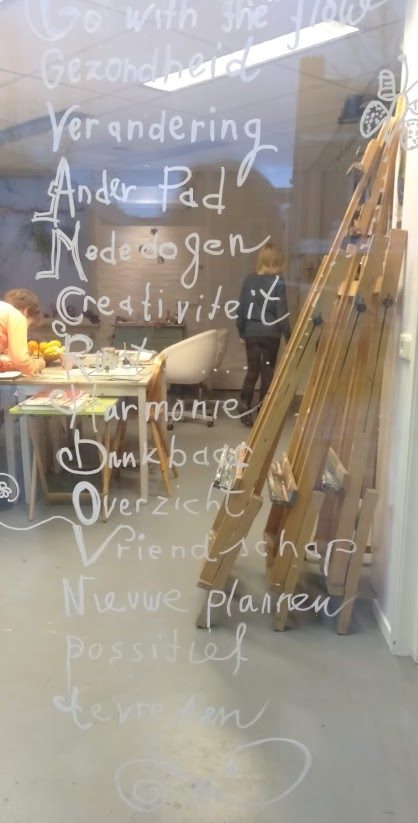 Go with the flow
Gezondheid
Verandering
Ander Pad
Mededogen
Creativiteit
Rust.....
Harmonie
Dankbaar
Overzicht
Vriendschap
Nieuwe plannen
possitief
tevreden